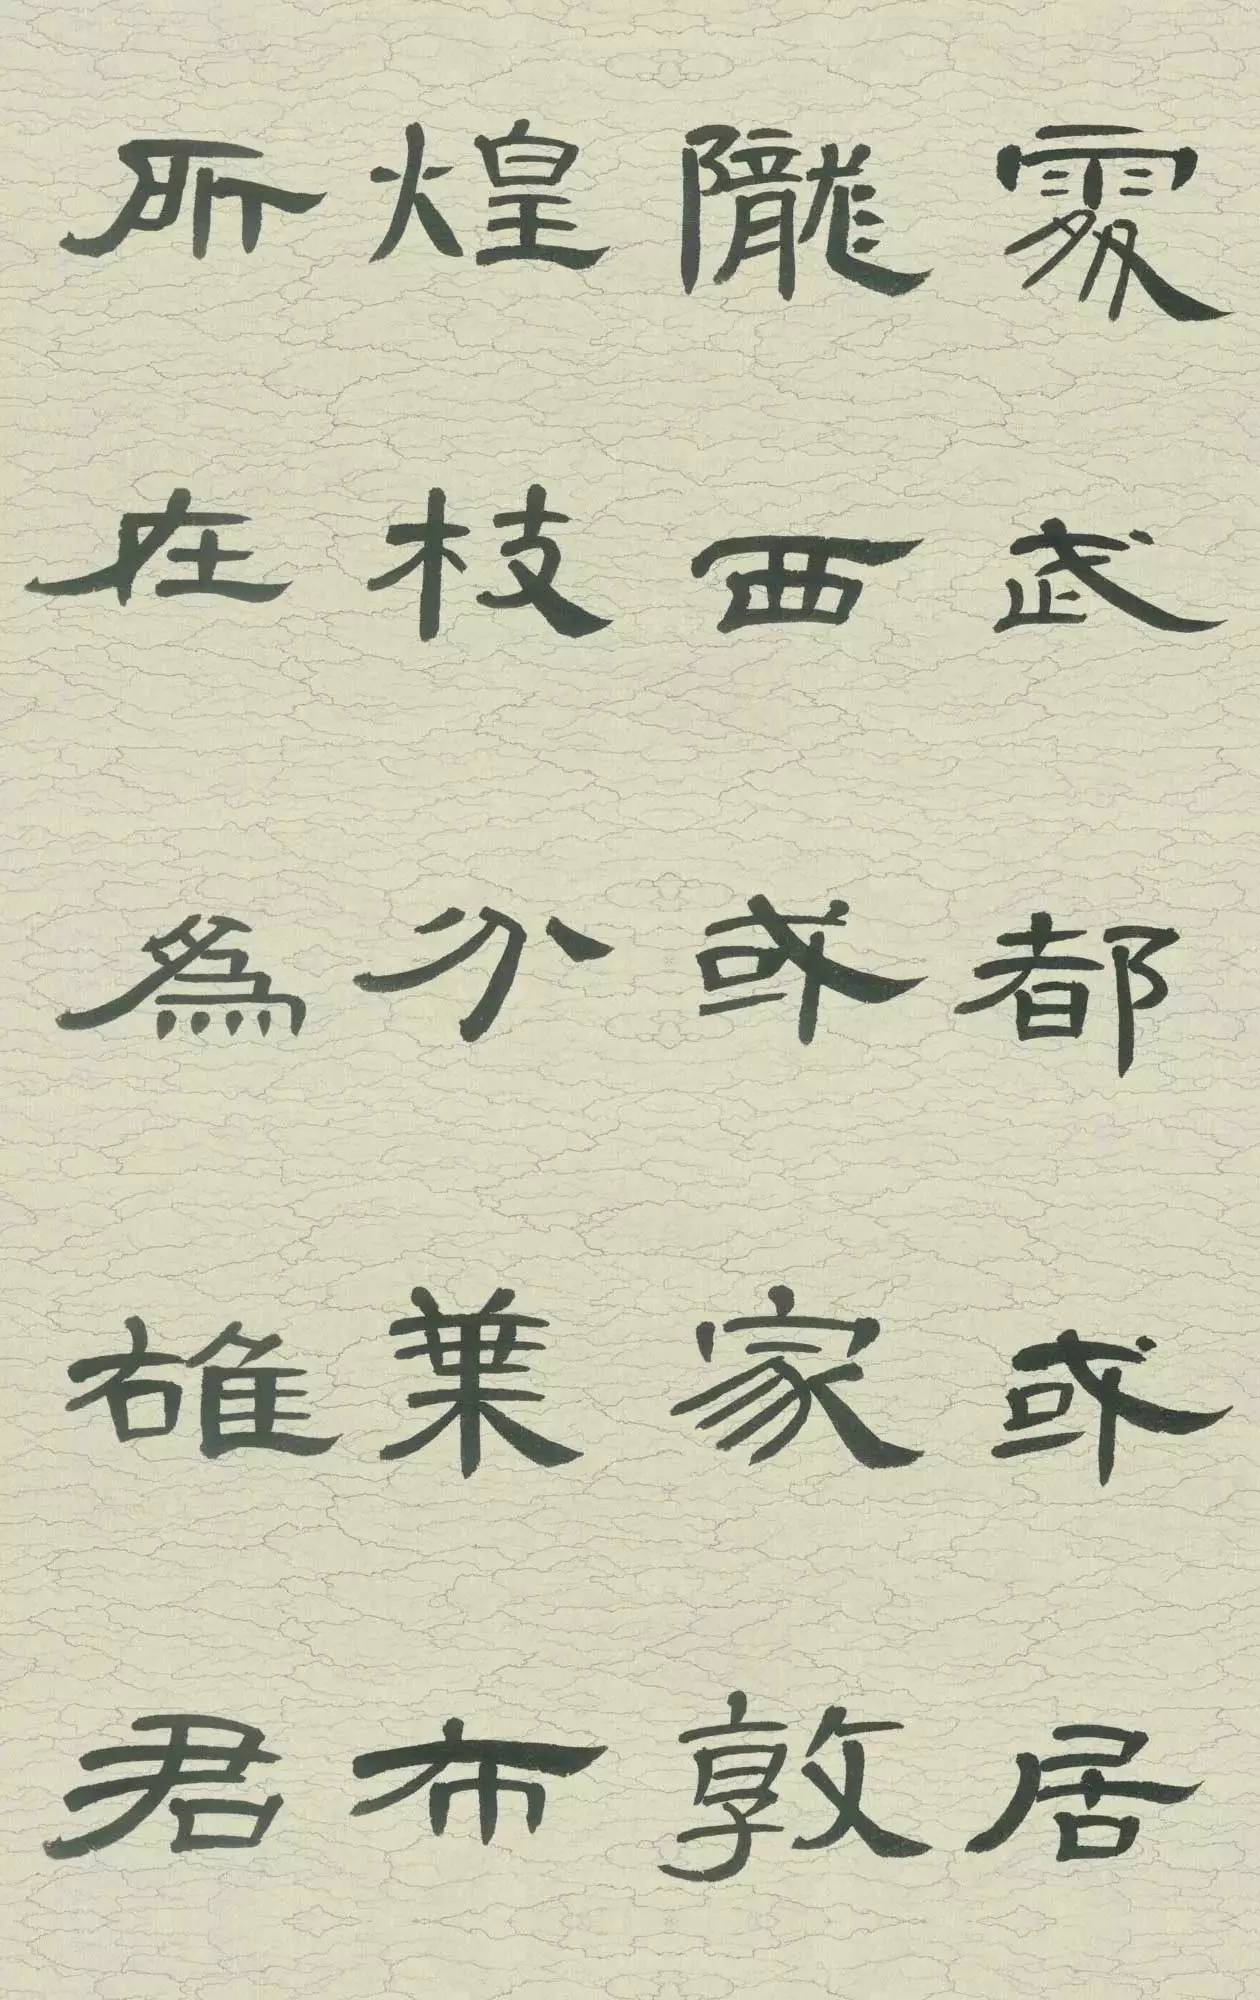 處武都或居
隴西或家敦
煌枝分葉布
所在為雄君